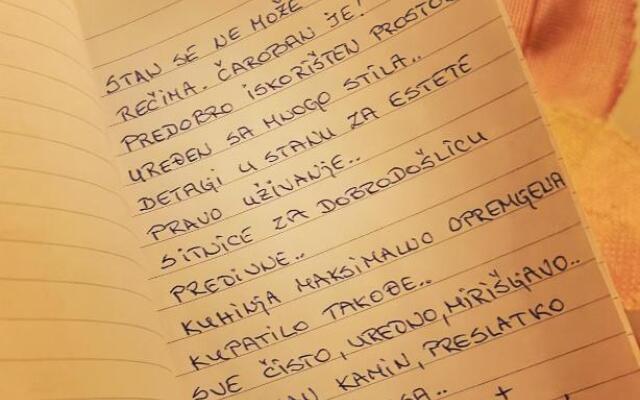 STAN SE NE MOŽE
REČIMA. ČAROBAN JE!
PREDOBRO ISKORIŠTEN PROSTOR
UREĐEN SA MNOGO STILA..
DETALJI U STANU ZA ESTETE
PRAVO UŽIVANJE..
SITNICE ZA DOBRODOŠLICU
PREDIVNE..
KUHINJA MAKSIMALNO OPREMLJENA
KUPATILO TAKOĐE..
SVE ČISTO, UREDNO, MIRIŠLJAVO..
KAMIN, PRESLATKO